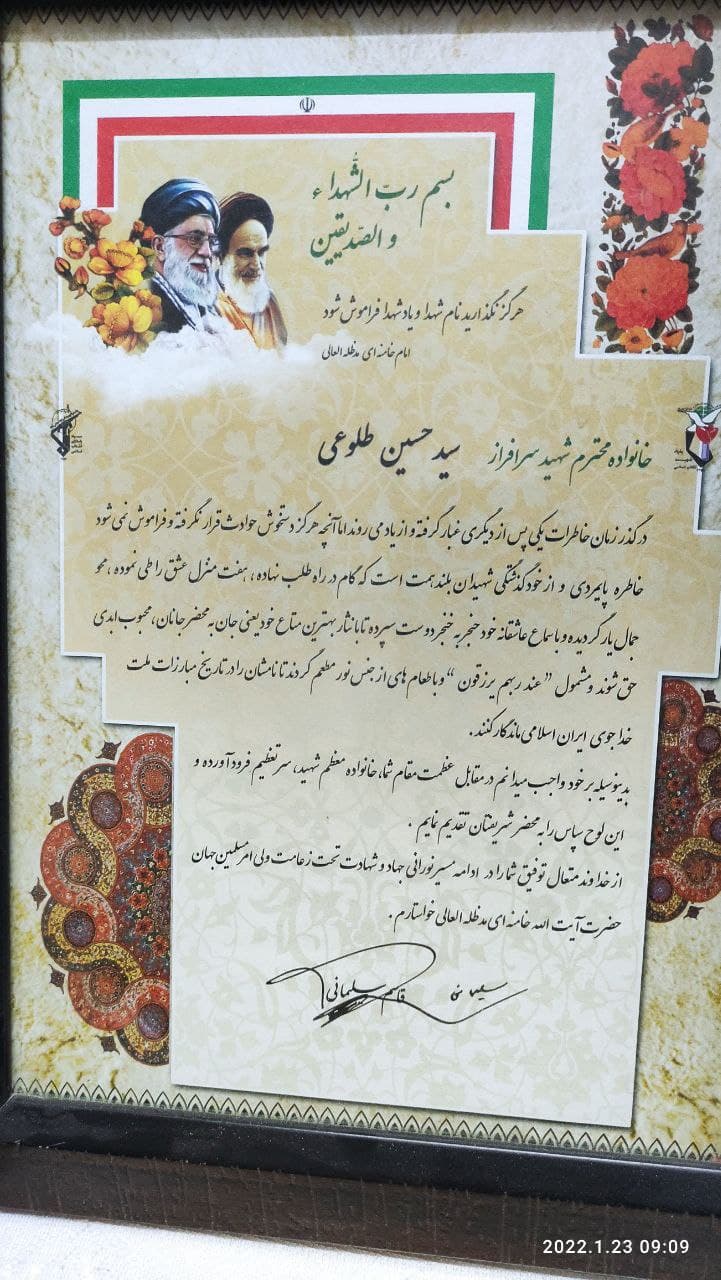 بسم ربّ الشّهداء
و الصّدیقین
هرگز نگذارید نام شهدا و یاد شهدا فراموش شود
امام خامنه ای مدظله العالی
خانواده محترم شهید سرافراز سید حسین طلوعی
در گذر زمان خاطرات یکی پس از دیگری غبار گرفته و از یاد می روند اما آنچه هرگز دستخوش حوادث قرار نگرفته و فراموش نمی شود
خاطره پایمردی و از خودگذشتگی شهیدان بلند همت است که گام در راه طلب نهاده ، هفت منزل عشق را طی نموده ، محو
جمال یار گردیده و با سماع عاشقانه خود حنجر به خنجر دوست سپرده تا با نثار بهترین متاع خود یعنی جان به محضر جانان، محبوب ابدی
حق شوند و مشمول "عند ربهم یرزقون" و با طعام های از جنس نور مطعم گردند تا نامشان را در تاریخ مبارزات ملت
خداجوی ایران اسلامی ماندگار کنند.
بدینوسیله بر خود واجب میدانم در مقابل عظمت مقام شما، خانواده معظم شهید، سر تعظیم فرود آورده و
این لوح سپاس را به محضر شریفتان تقدیم نمایم .
از خداوند متعال توفیق شما را در ادامه مسیر نورانی جهاد و شهادت تحت زعامت ولی امر مسلمین جهان
حضرت آیت الله خامنه ای مدظله العالی خواستارم .
قاسم سلیمانی
2022.1.23 09:09